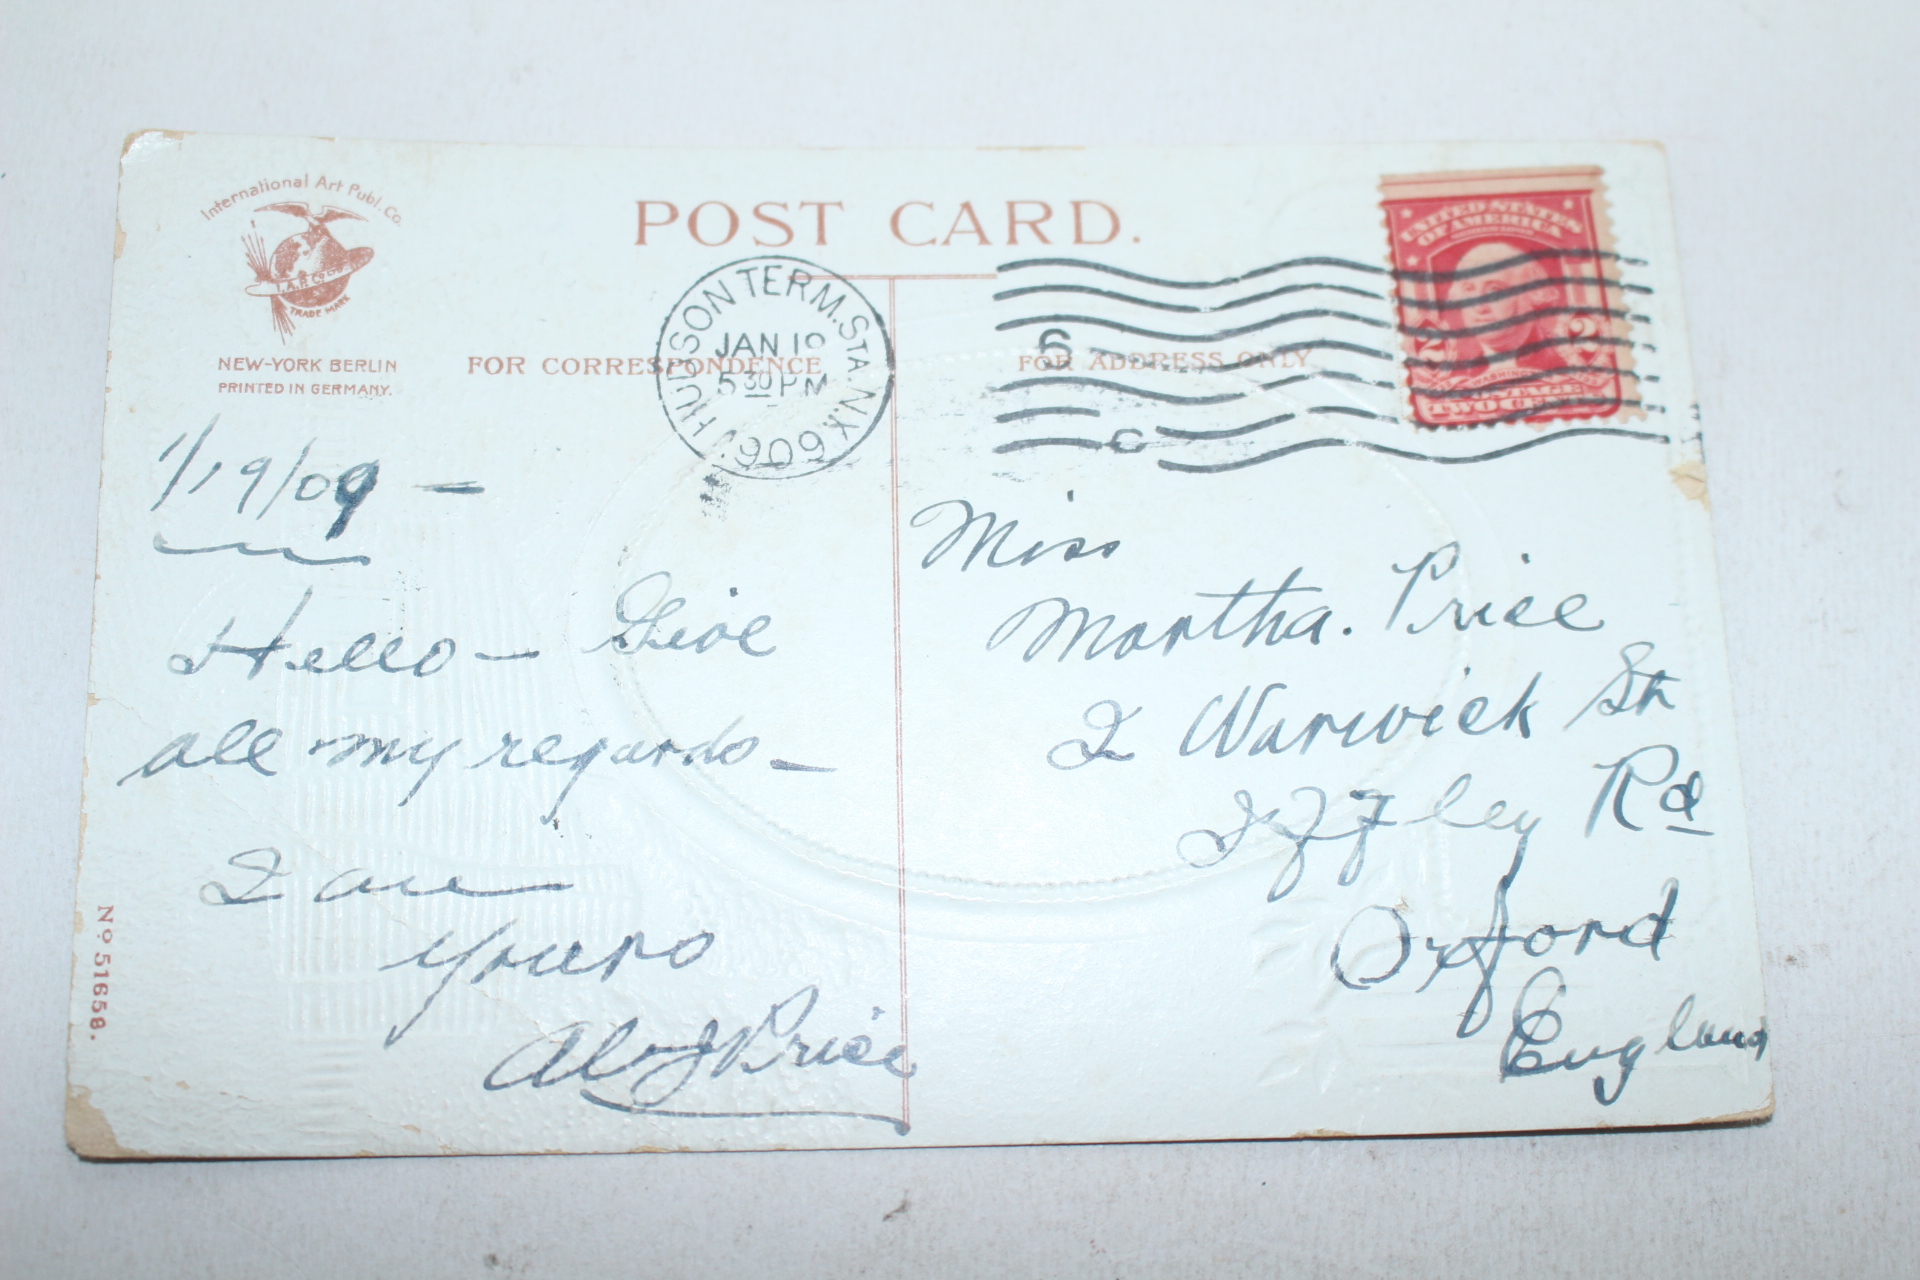 International Art Publ. Co.
TRADE MARK
NEW-YORK BERLIN
PRINTED IN GERMANY.
POST CARD.
FOR CORRESPONDENCE
FOR ADDRESS ONLY
HUDSON TERM. STA. N.Y.
JAN 19
5 30 PM
1909
6
C
UNITED STATES
OF AMERICA
2 2
WASHINGTON
POSTAGE
TWO CENTS
1/19/09 -
Hello - Give
all my regards -
I am
Yours
Al J Price
Miss
Martha. Price
2 Warwick St
Iffley Rd
Oxford
England
No. 51658.